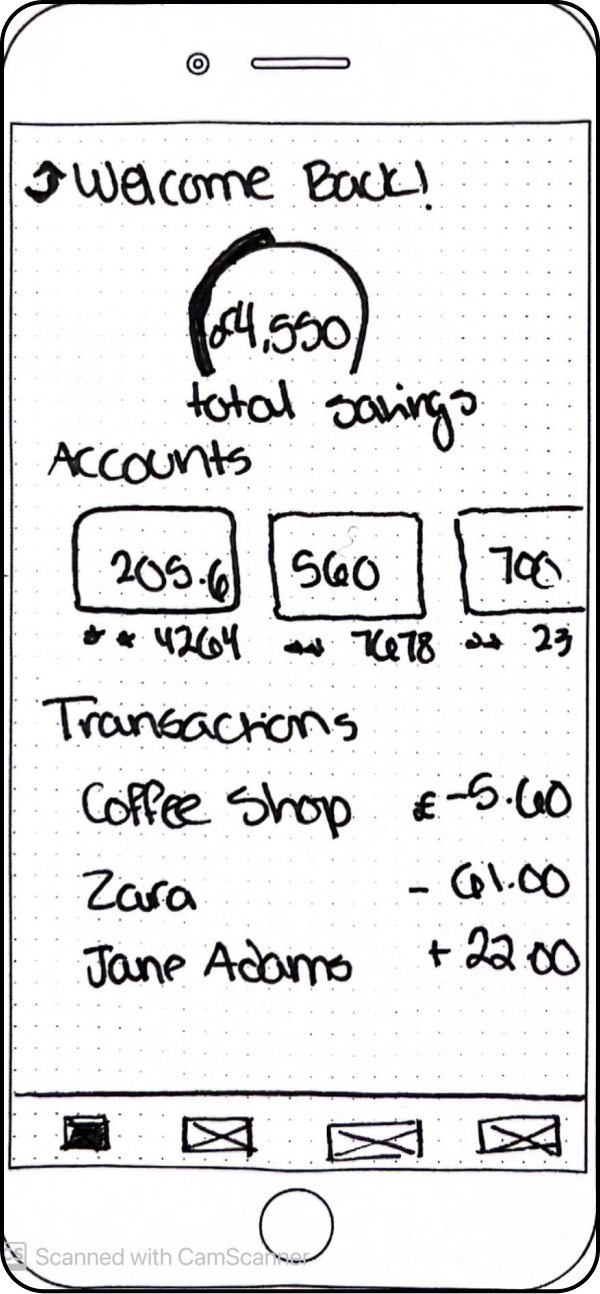 Welcome Back!
£4,550
total savings
Accounts
205.6 560 700
** 4264 ** 7678 ** 23
Transactions
Coffee Shop £-5.60
Zara - 61.00
Jane Adams + 22.00
Scanned with CamScanner